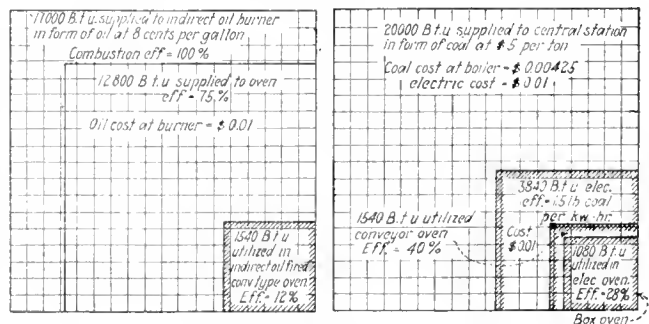 17000 B.t.u. supplied to indirect oil burner
in form of oil at 8 cents per gallon
Combustion eff = 100%
12800 B.t.u supplied to oven
eff = 75%
Oil cost at burner = $0.01
1540 B.t.u
utilized in
indirect oil fired
conv type oven
Eff. = 12%
20000 B.t.u supplied to central station
in form of coal at $5 per ton
Coal cost at boiler = $0.00425
electric cost = $0.01
3840 B.t.u elec.
eff. = 1.5 lb coal
per kw-hr.
1540 B.t.u utilized
conveyor oven
Eff. = 40%
Cost
$0.01
1080 B.t.u
utilized in
elec oven
Eff. = 28%
Box oven